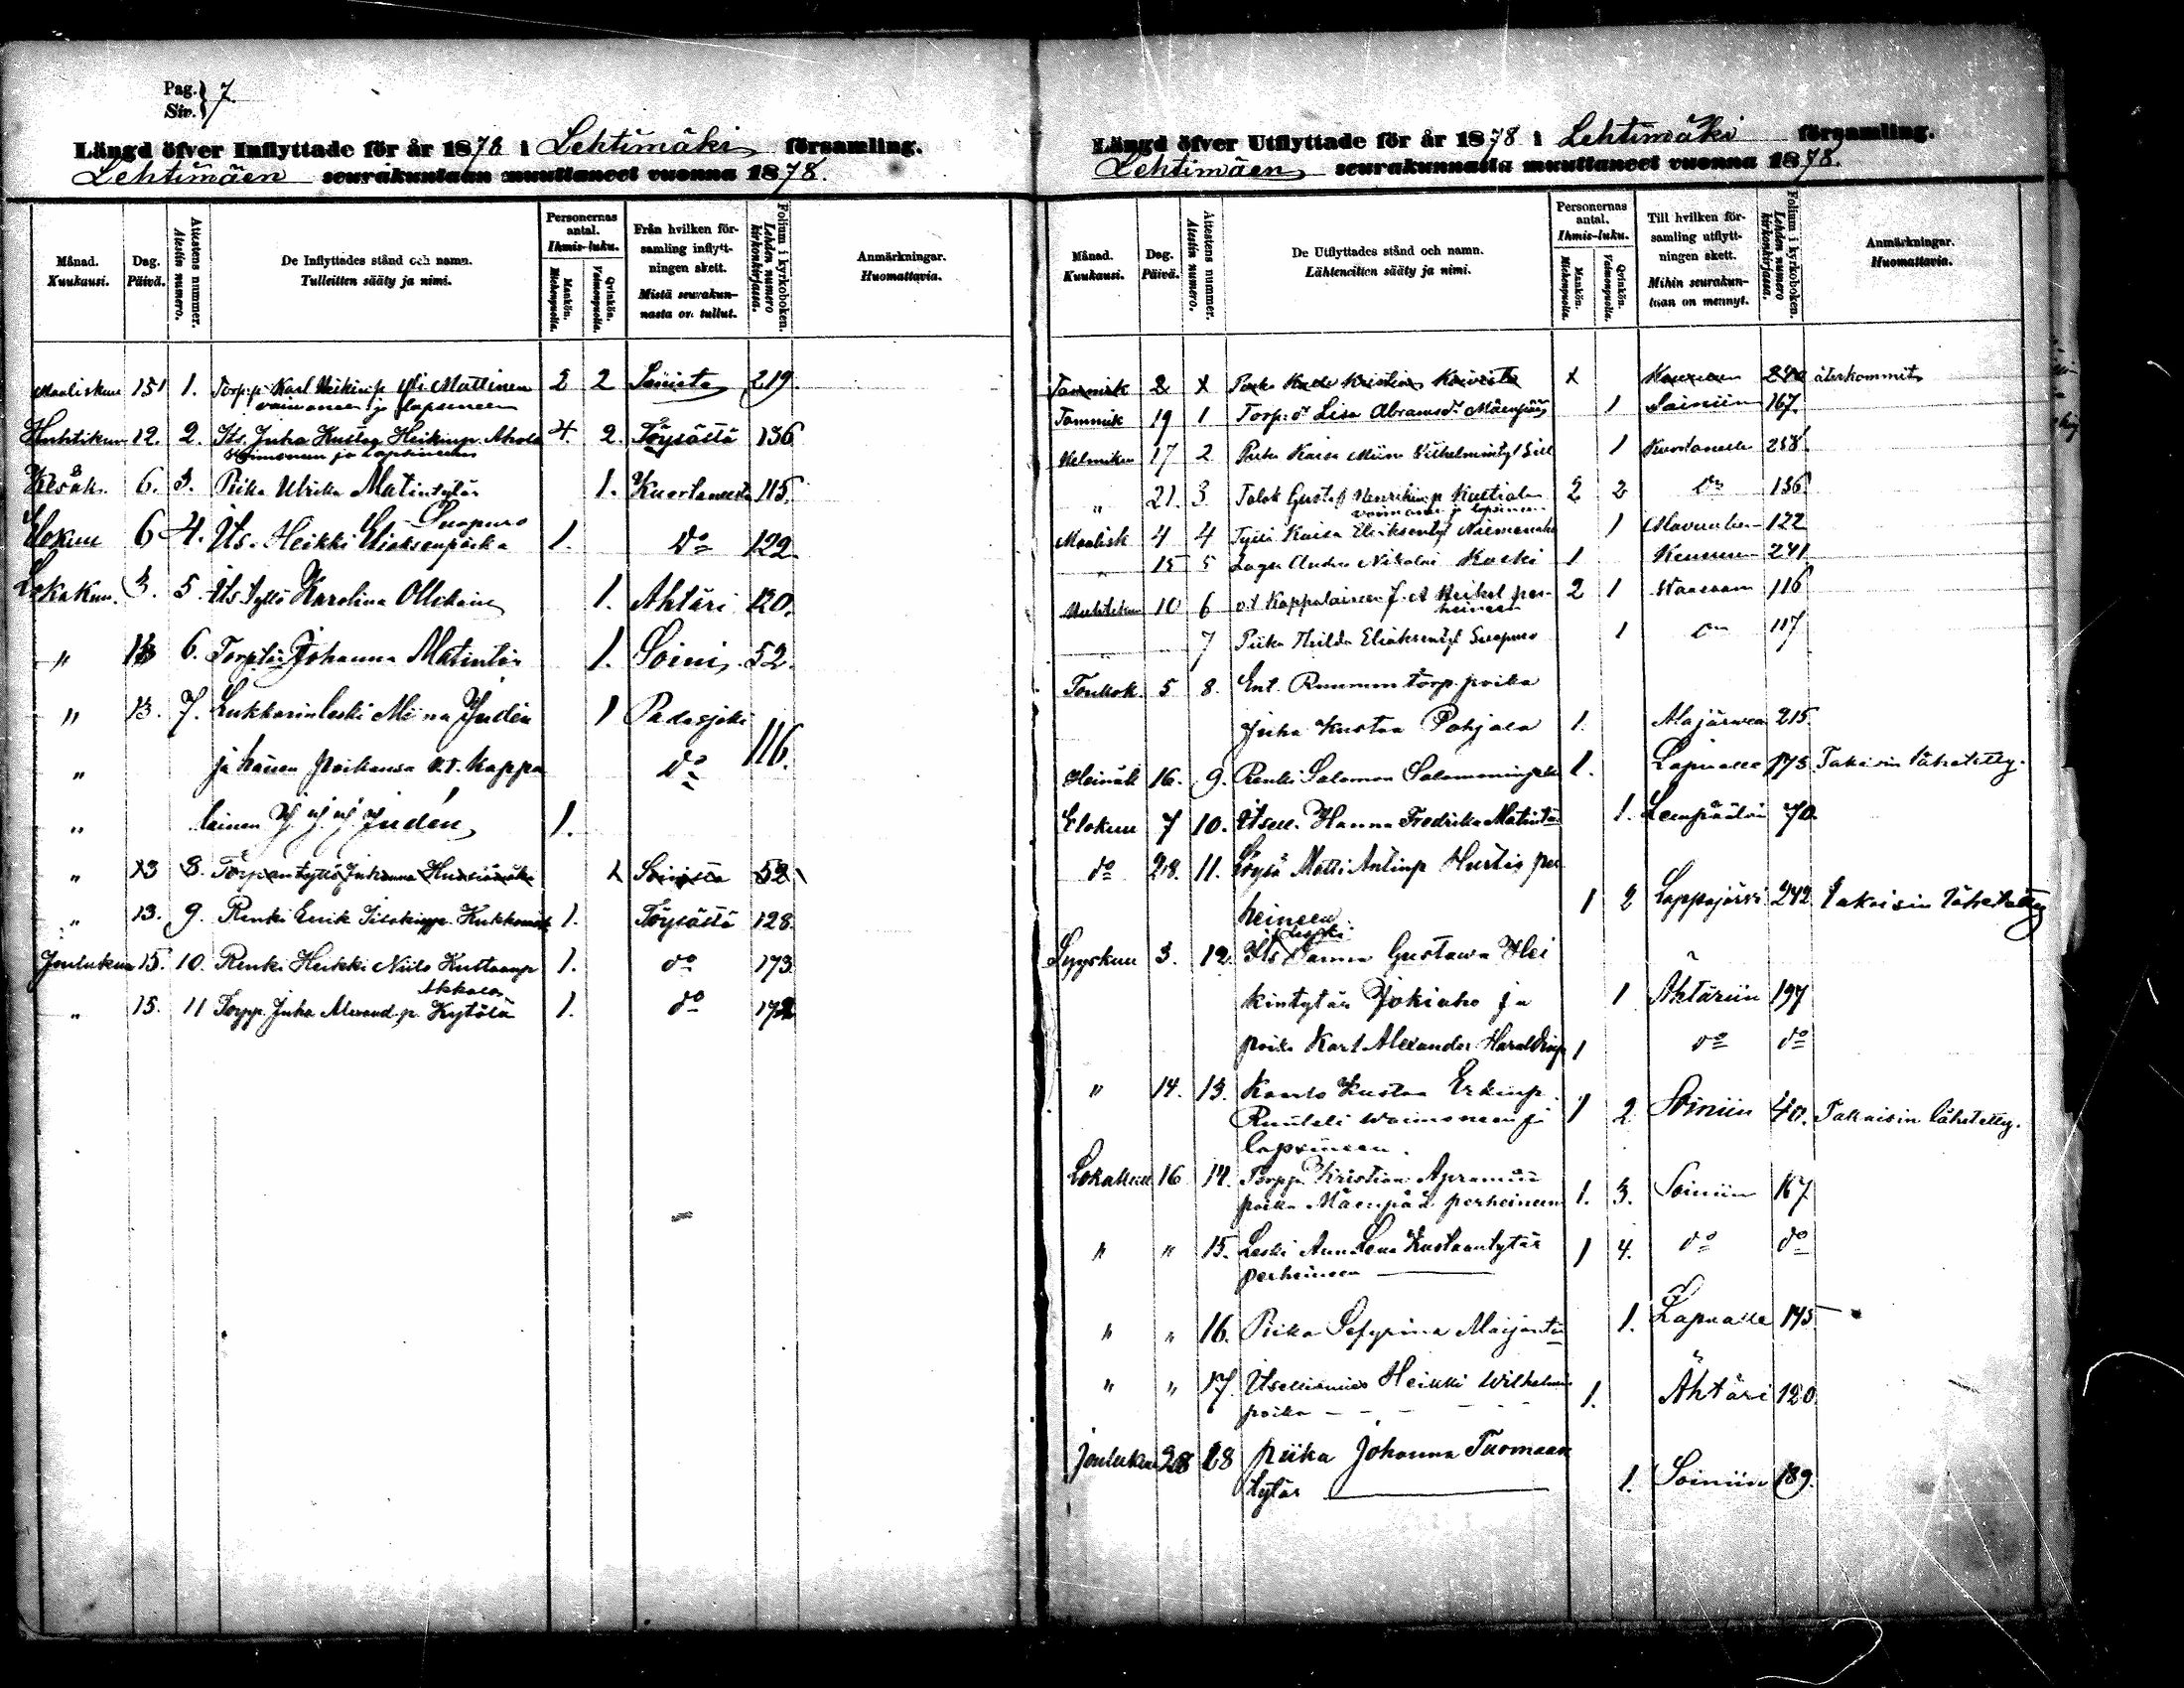 Pag.
Siv. } 7.
Längd öfver Inflyttade för år 1878 i Lehtimäki församling.
Lehtimäen seurakuntaan muuttaneet vuonna 1878.
Månad. Kuukausi. Dag. Päivä. Attestens nummer. Atestin numero. De Inflyttades stånd och namn. Tulleitten sääty ja nimi. Personernas antal. Ihmis-luku. Mankön. Miehenpuolia. Qvinkön. Vaimonpuolia. Från hvilken församling inflyttningen skett. Mistä seurakunnasta on tullut. Folium i kyrkoboken. Lehden numero kirkonkirjassa. Anmärkningar. Huomattavia.
Maaliskuu 15 1. Torp.p. Karl Heikinp. Yli Mattinen 2 2 Soinista 219.
vaimoneen ja lapsineen
Huhtikuu 12. 2. Its. Juha Kustaa Heikinp. Ahola 4. 2. Töysästä 136
Vaimoneen ja Lapsineen
Kesäk. 6. 3. Piika Ulrika Matintytär 1. Kuortaneesta 115.
Elokuu 6 4. Its. Heikki Eliaksenpoika 1. do 122
Suopuro
Lokakuu. 3. 5. Its. tyttö Karolina Ollikain 1. Ahtäri 120.
" 13 6. Torp.tär Johanna Matintär 1. Soini 52.
" 13. 7. Lukkarinleski Miina Judén 1 Padasjoki
" ja hänen poikansa v.t. Kappa do 116.
" lainen Judén 1.
" 13 8. Torpantyttö Johanna 1 Soinista 52
" 13. 9. Renki Eerik Iisakinp. 1. Töysästä 128.
Joulukuu 15. 10. Renki Heikki Niilo Kustaanp 1. do 173
Akkala
" 15. 11 Torpp. Juha Alexand.p. Kytölä 1. do 172
Längd öfver Utflyttade för år 1878 i Lehtimäki församling.
Lehtimäen seurakunnasta muuttaneet vuonna 1878.
Månad. Kuukausi. Dag. Päivä. Attestens nummer. Atestin numero. De Utflyttades stånd och namn. Lähteneitten sääty ja nimi. Personernas antal. Ihmis-luku. Mankön. Miehenpuolia. Qvinkön. Vaimonpuolia. Till hvilken församling utflyttningen skett. Mihin seurakuntaan on mennyt. Folium i kyrkoboken. Lehden numero kirkonkirjassa. Anmärkningar. Huomattavia.
Tammik 2 x Kristian Koivisto x 240 återkommit
Tammik 19 1 Torp.dr Lisa Abramsdr Mäenpää 1 Soiniin 167.
Helmikuu 17 2 Piika Kaisa Miina Vilhelmintyt 1 Kuortaneelle 238
" 21. 3 Talok Gustaf Henrikinp Kuttiala 2 2 do 136
vaimoneen ja lapsineen
Maalisk 4 4 Tyttö Kaisa Eliaksentyt Niemenaho 1 Alavuuteen 122
" 15 5 Nikolai Koski 1 241
Huhtikuu 10 6 v.t Kappalainen perheineen 2 1 116
7 Piika Hilda Eliaksentyt Suopuro 1 do 117
Toukok 5 8. Ent. Ruununtorp. poika
Juha Kustaa Pohjala 1. Alajärveen 215
Heinäk 16. 9. Renki Salomon Salomoninpoika 1. Lapualle 175. Takaisin lähetetty.
Elokuu 7 10. Itsell. Hanna Fredrika Matintär 1. Lempäälän 70.
do 28. 11. Löysä Matti Antinp Hurtig per
heineen. 1 2 Lappajärvi 242 takaisin lähetetty
Syyskuu 3. 12. Its leski Sanna Gustava Hei
kintytär Jokiaho ja 1 Ähtäriin 197
poika Karl Alexander Haraldinp 1 do do
" 14. 13. Kaarlo Kustaa Erkinp.
Ruuteli Vaimoneen ja 1 2 Soiniin 40. Takaisin lähetetty.
lapsineen.
Lokakuu 16 14. Torpp. Kristian Apramin
poika Mäenpää perheineen 1. 3. Soiniin 167
" " 15. Leski Ann Lena Kustaantytär 1 4. do do
perheineen
" " 16. Piika Sefyrina Maijantär 1. Lapualle 145
" " 17 Itsellismies Heikki Wilhelmin
poika 1. Ähtäri 120.
Joulukuu 28 18 piika Johanna Tuomaan
tytär 1. Soiniin 189.